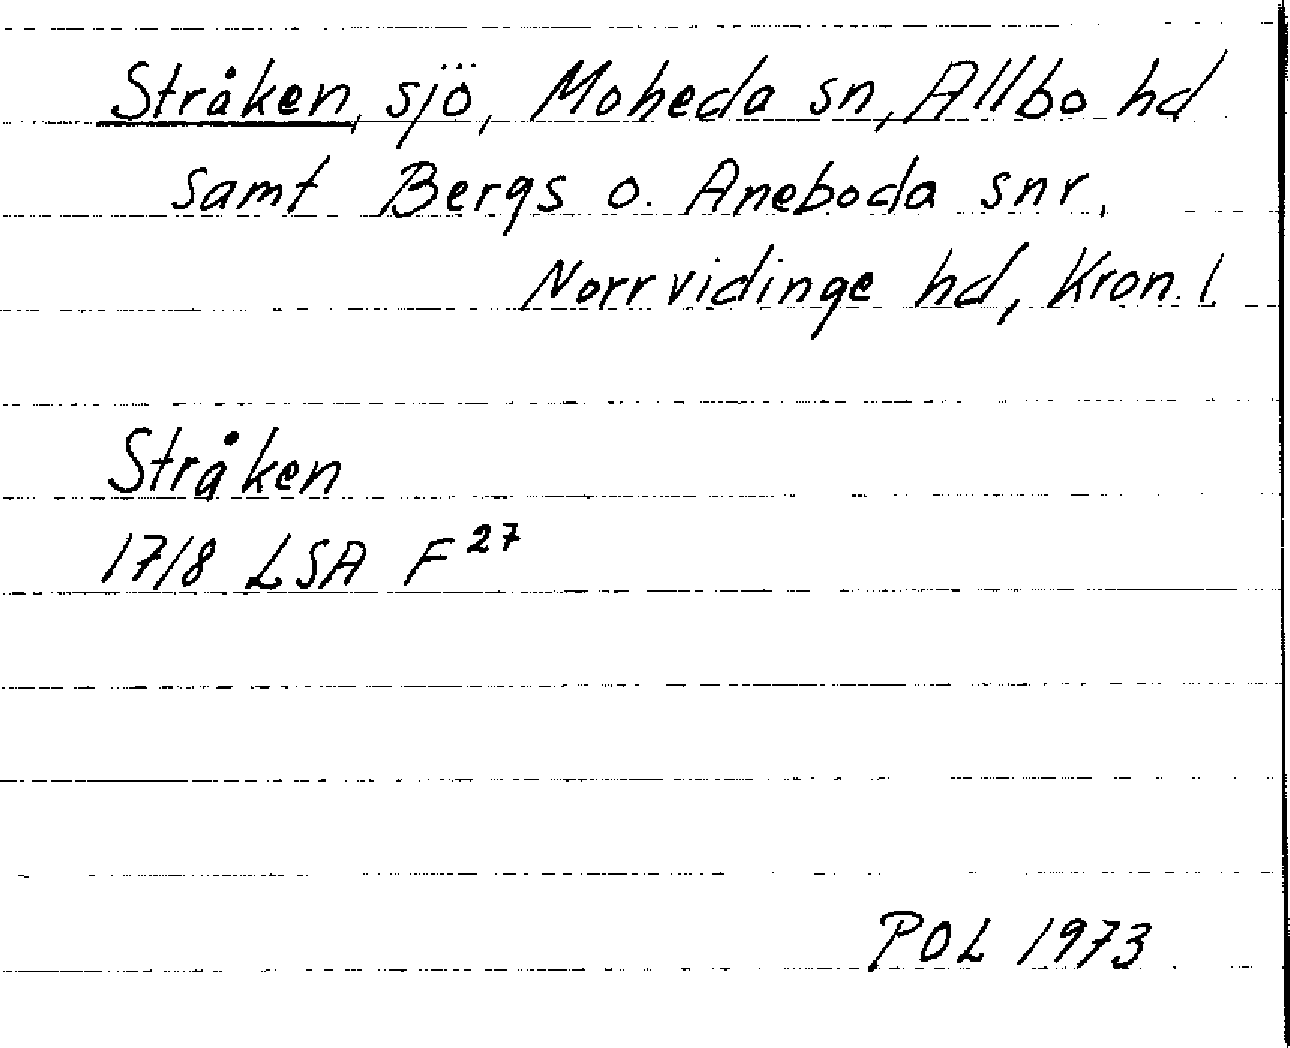 Stråken, sjö, Moheda sn, Allbo hd
samt Bergs o. Aneboda snr,
Norrvidinge hd, Kron. l
Stråken
1718 LSA F²⁷
POL 1973